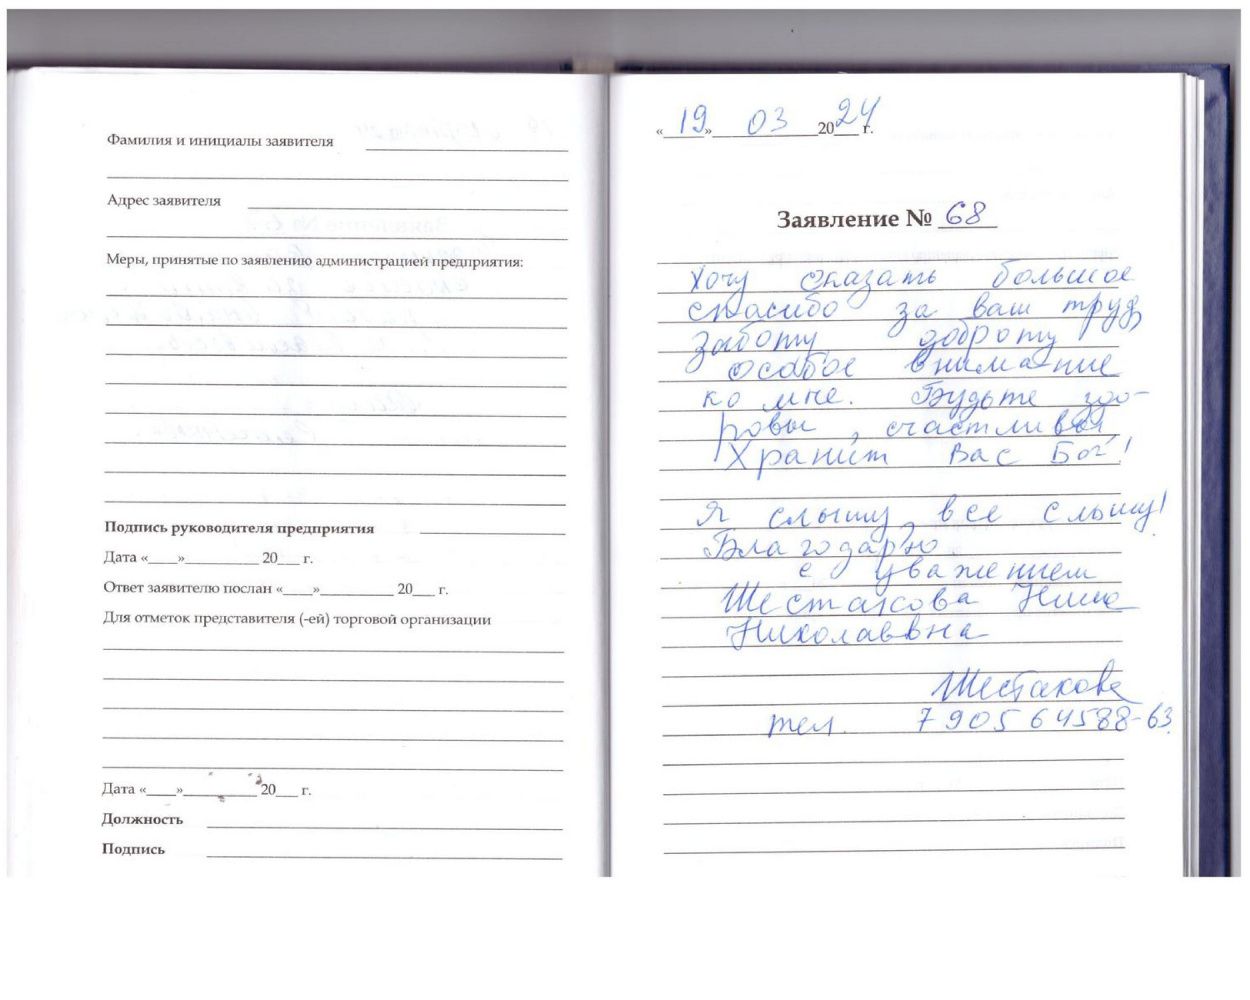 Фамилия и инициалы заявителя
Адрес заявителя
Меры, принятые по заявлению администрацией предприятия:
Подпись руководителя предприятия
Дата «____»__________ 20___ г.
Ответ заявителю послан «____»__________ 20___ г.
Для отметок представителя (-ей) торговой организации
Дата «____»__________ 20___ г.
Должность
Подпись
«19» 03 2024 г.
Заявление № 68
Хочу сказать большое
спасибо за ваш труд,
заботу, доброту
особое внимание
ко мне. Будьте здо-
ровы, счастливы,
Хранит Вас Бог!
Я слышу, все слышу!
Благодарю.
с уважением
Шестакова Нина
Николаевна
Шестакова
тел. 7905 64588-63